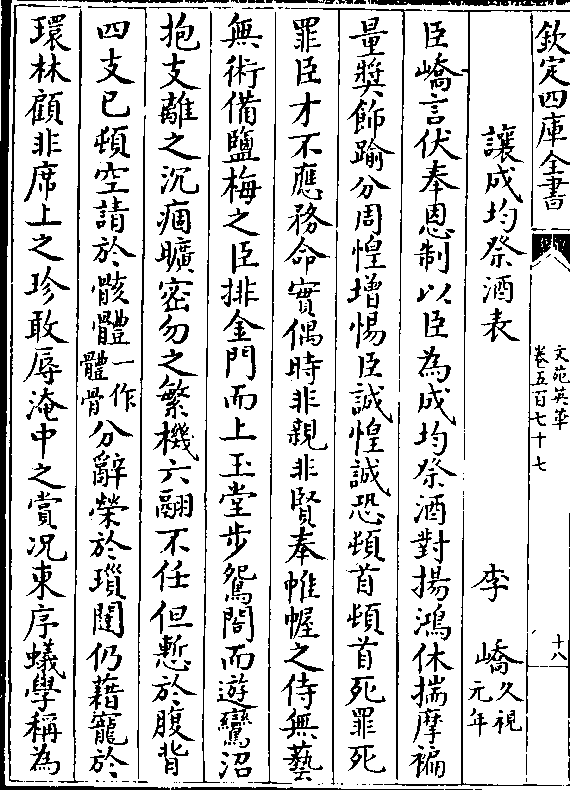 欽定四庫全書
文苑英華
卷五百七十七
十八
讓成均祭酒表
李嶠久視元年
臣嶠言伏奉恩制以臣為成均祭酒對揚鴻休揣摩褊
量奬飾踰分周惶增惕臣誠惶誠恐頓首頓首死罪死
罪臣才不應務命實偶時非親非賢奉帷幄之侍無藝
無術備鹽梅之臣排金門而上玉堂步鴛閣而遊鸞沼
抱支離之沉痼曠密勿之繁機六翮不任但慙於腹背
四支已頓空請於骸體一作體骨分辭榮於瑣闥仍藉寵於
環林顧非席上之珍敢辱淹中之賞况東序蟻學稱為